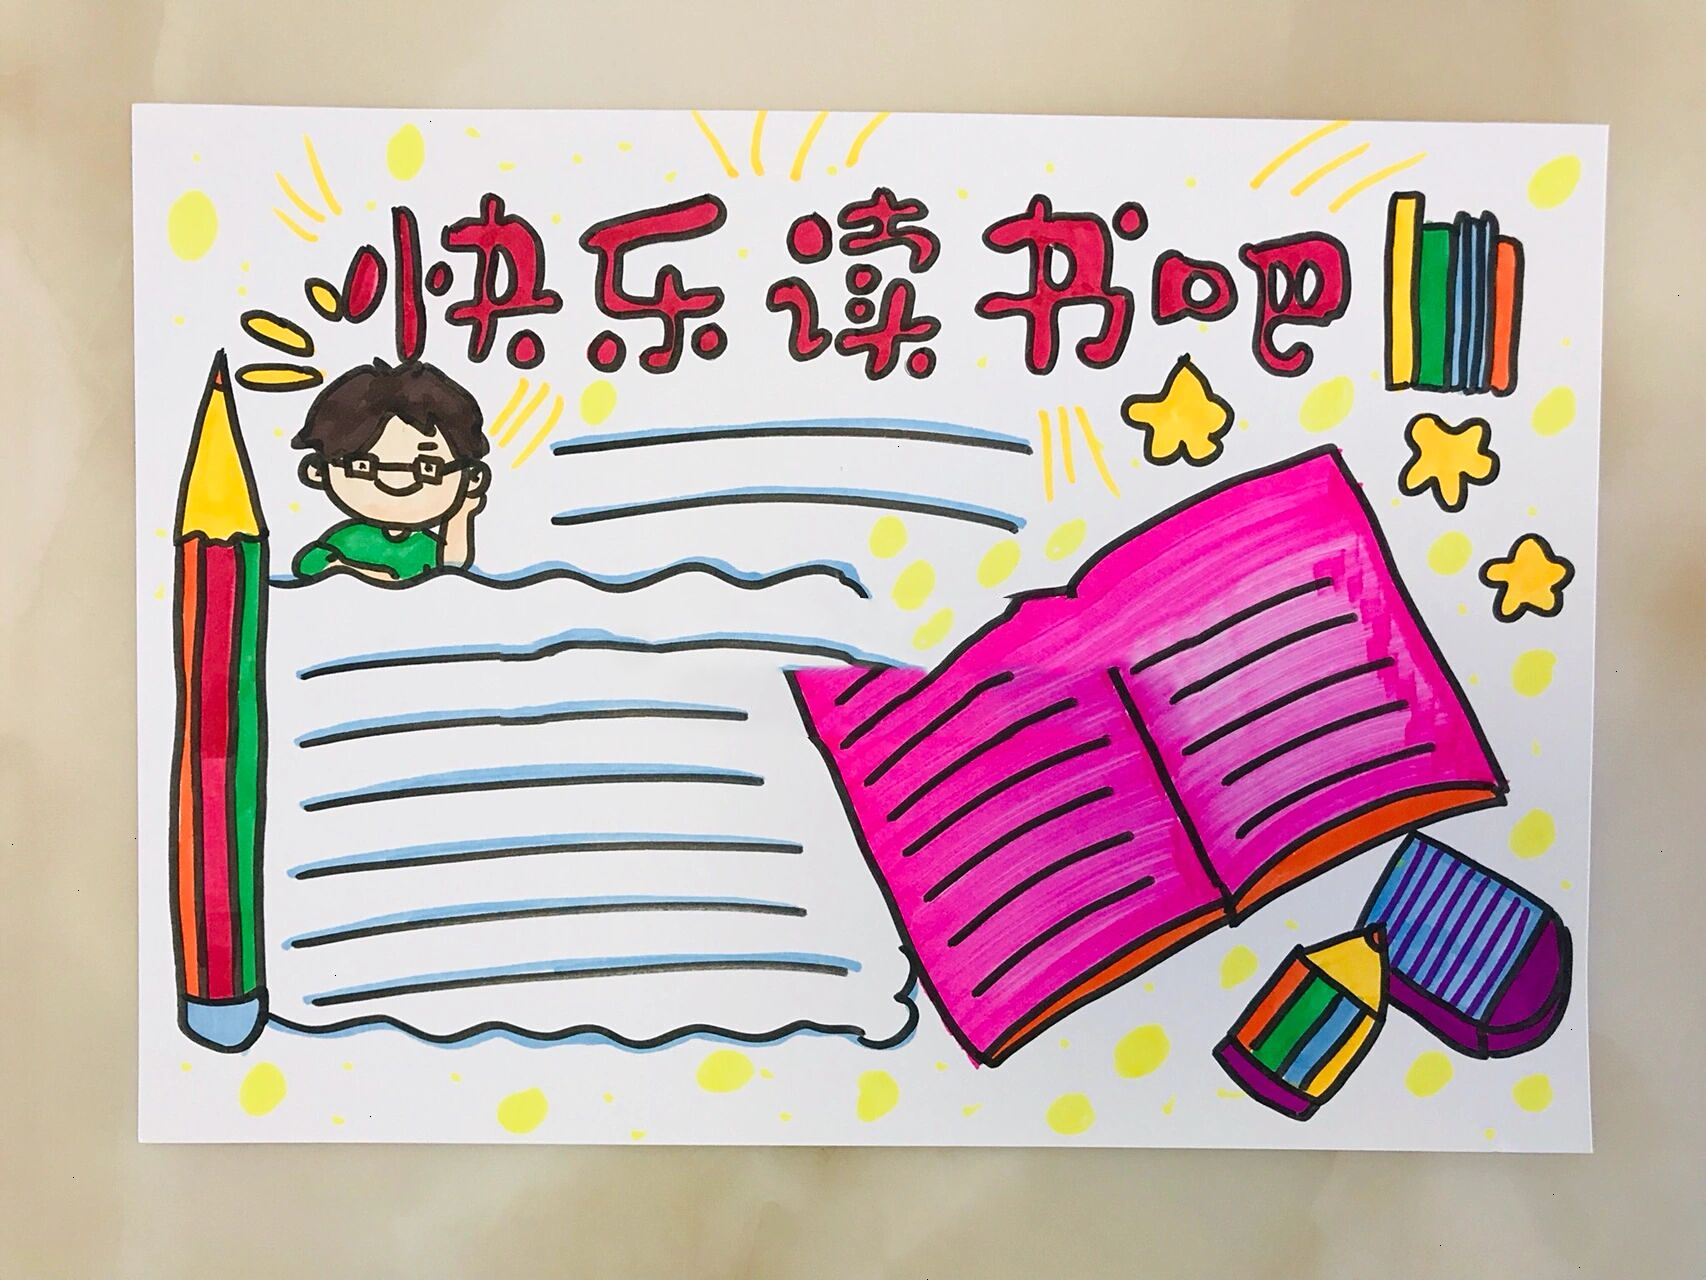 快乐读书吧